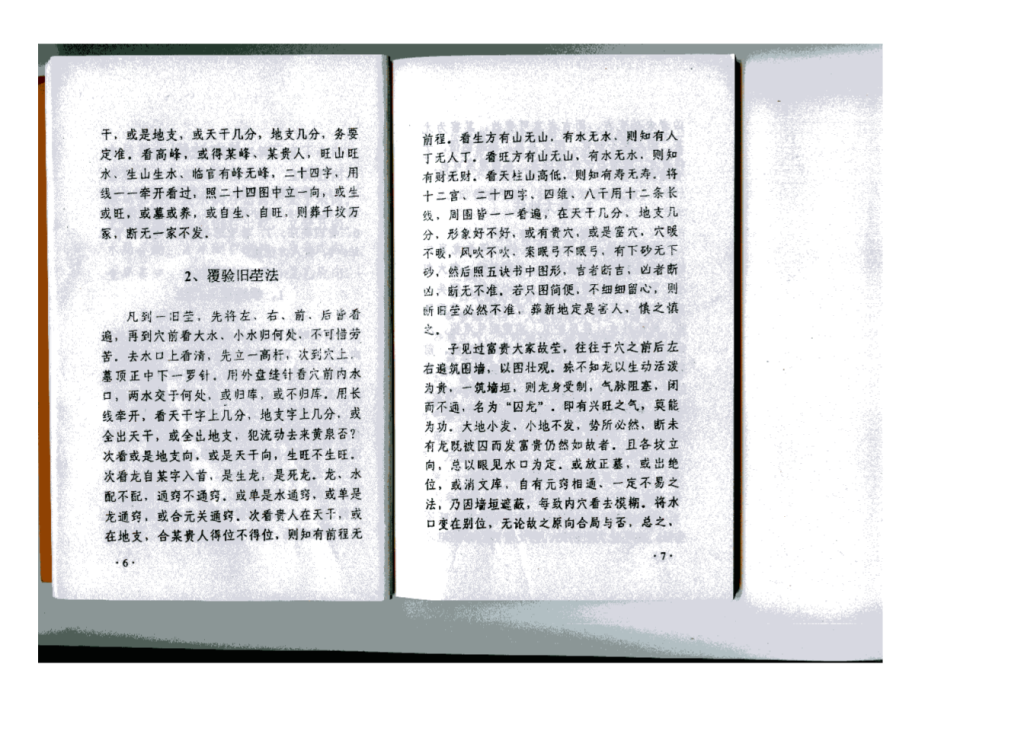 干，或是地支，或天干几分，地支几分，务要
定准。看高峰，或得某峰、某贵人，旺山旺
水、生山生水、临官有峰无峰，二十四字，用
线一一牵开看过，照二十四图中立一向，或生
或旺，或墓或养，或自生、自旺，则葬千坟万
冢，断无一家不发。
2、覆验旧茔法
凡到一旧茔，先将左、右、前、后皆看
遍，再到穴前看大水、小水归何处，不可惜劳
苦。去水口上看清，先立一高杆，次到穴上，
墓顶正中下一罗针。用外盘缝针看穴前内水
口，两水交于何处，或归库，或不归库。用长
线牵开，看天干字上几分，地支字上几分，或
全出天干，或全出地支，犯流动去来黄泉否？
次看或是地支向，或是天干向，生旺不生旺。
次看龙自某字入首，是生龙，是死龙。龙、水
配不配，通窍不通窍。或单是水通窍，或单是
龙通窍，或合元关通窍。次看贵人在天干，或
在地支，合某贵人得位不得位，则知有前程无
·6·
前程。看生方有山无山，有水无水，则知有人
丁无人丁。看旺方有山无山，有水无水，则知
有财无财。看天柱山高低，则知有寿无寿。将
十二宫、二十四字、四维、八干用十二条长
线，周围皆一一看遍，在天干几分，地支几
分，形象好不好，或有贵穴，或是富穴，穴暖
不暖，风吹不吹，案眠弓不眠弓，有下砂无下
砂，然后照五诀书中图形，吉者断吉，凶者断
凶，断无不准。若只图简便，不细细留心，则
断旧茔必然不准，葬新地定是害人，慎之慎
之。
予见过富贵大家故茔，往往于穴之前后左
右遍筑围墙，以图壮观。殊不知龙以生动活泼
为贵，一筑墙垣，则龙身受制，气脉阻塞，闭
而不通，名为“囚龙”。即有兴旺之气，莫能
为功。大地小发、小地不发，势所必然，断未
有龙既被囚而发富贵仍然如故者。且各坟立
向，总以眼见水口为定。或放正墓，或出绝
位，或消文库，自有元窍相通，一定不易之
法，乃因墙垣遮蔽，每致内穴看去模糊。将水
口变在别位，无论故之原向合局与否，总之，
·7·